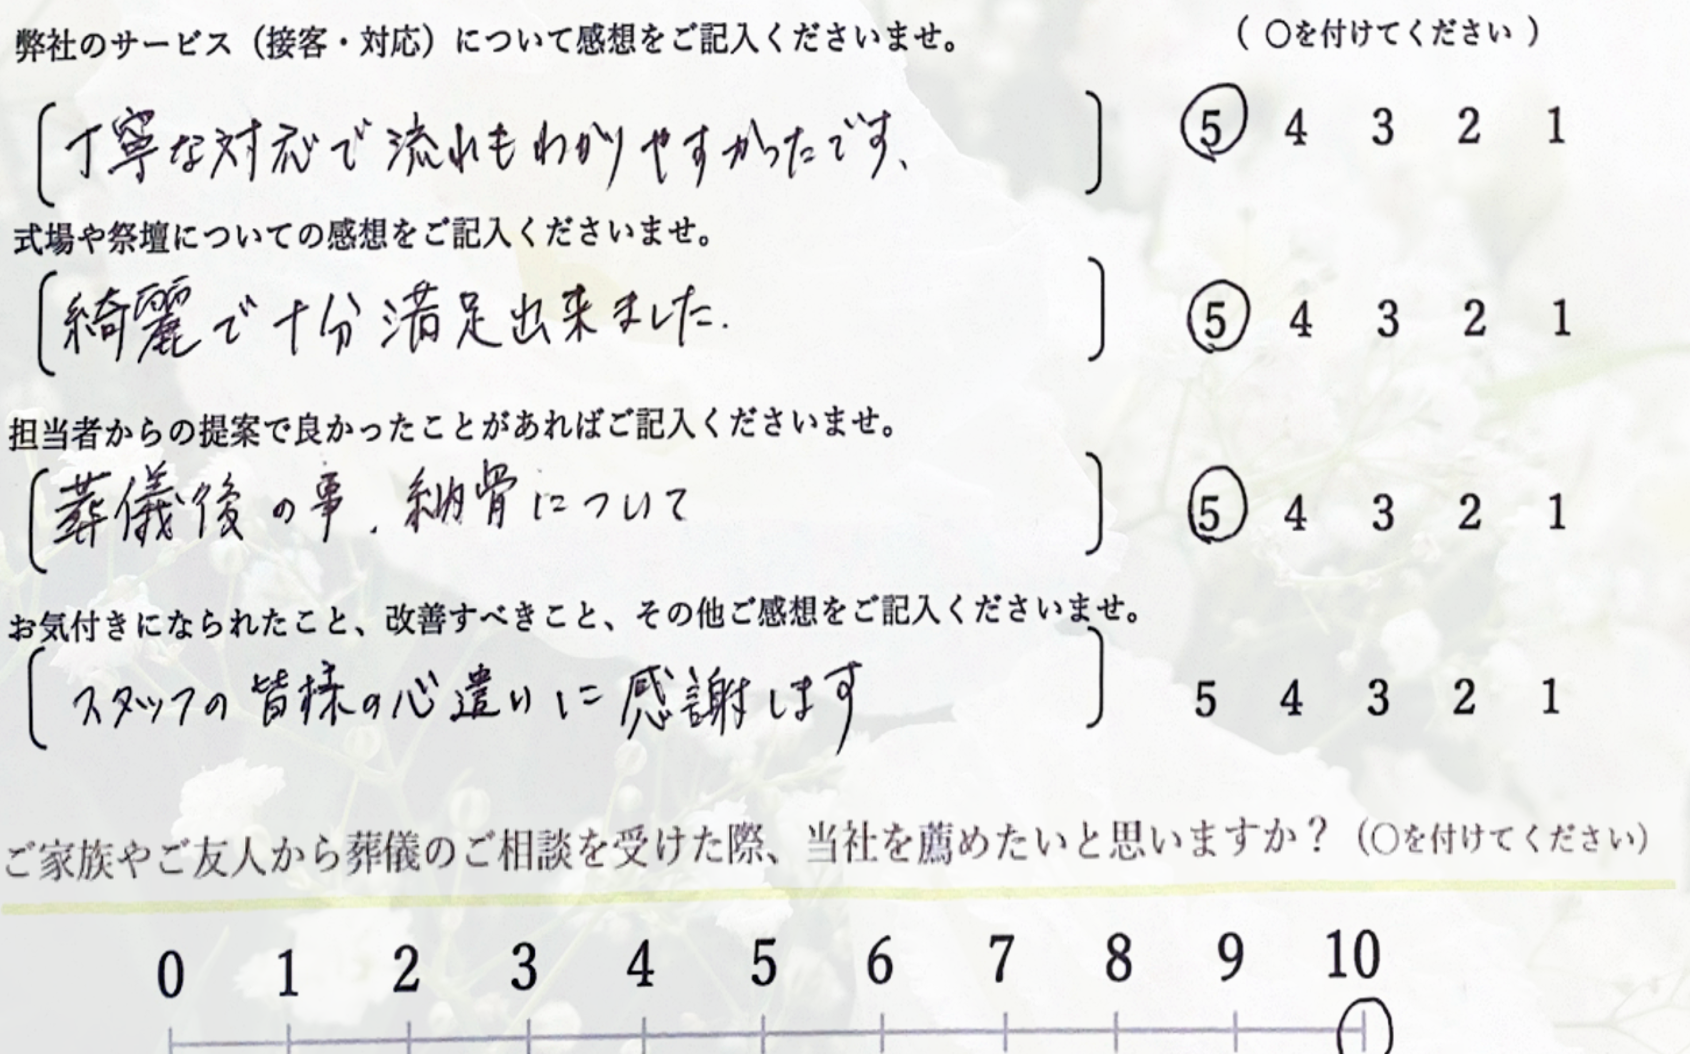 弊社のサービス（接客・対応）について感想をご記入くださいませ。 （ 〇を付けてください ）
丁寧な対応で流れもわかりやすかったです、 5 4 3 2 1
式場や祭壇についての感想をご記入くださいませ。
綺麗で十分満足出来ました. 5 4 3 2 1
担当者からの提案で良かったことがあればご記入くださいませ。
葬儀後の事、納骨について 5 4 3 2 1
お気付きになられたこと、改善すべきこと、その他ご感想をご記入くださいませ。
スタッフの皆様の心遣いに感謝します 5 4 3 2 1
ご家族やご友人から葬儀のご相談を受けた際、当社を薦めたいと思いますか？（〇を付けてください）
0 1 2 3 4 5 6 7 8 9 10